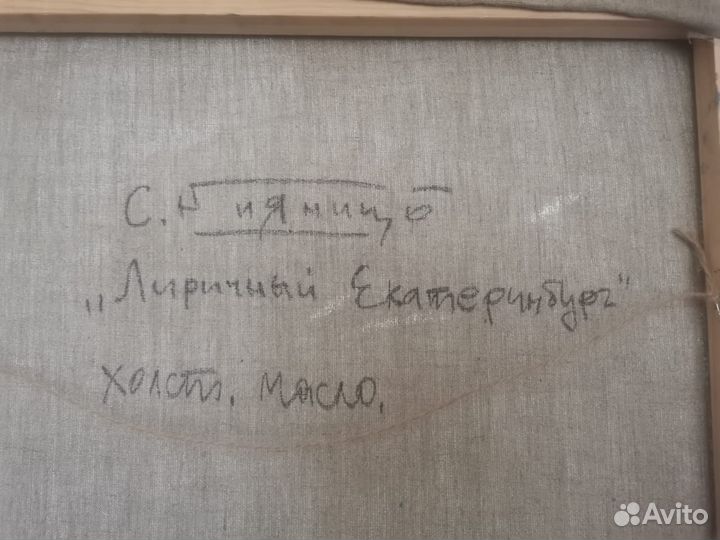 С.
„Лиричный Екатеринбург"
холст. масло.
Avito